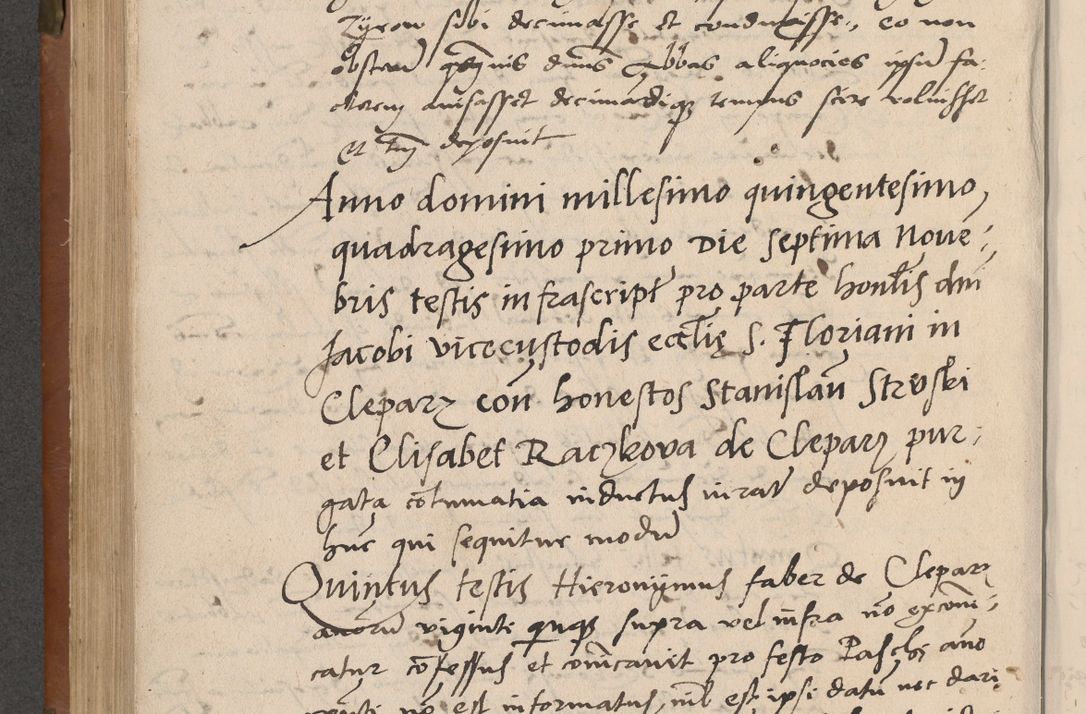 Zyrow sibi decimasse et conduxisse, eo non
obstan̄ q̄muis dn̄us Abbas aliquocies ipsū fa-
ctorem auisasset decimandiq̨ tempus scire voluisset
et tm̄ deposuit
Anno domini millesimo quingentesimo,
quadragesimo primo Die septima Noue-
bris testis infrascript̄ pro parte honl̄is dn̄i
Jacobi vicecustodis eccl̄ię S. Floriani in
Cleparz con̄ honestos Stanislaū Stroski
et Elisabet Raczkova de Cleparz pur-
gata cōtumatia inductus iurat̄ deposuit in
hūc qui sequitur modū
Quintus testis Hieronymus faber de Cleparz
annorū viginti quīq̨ supra vel infra nō excōni-
catur cōfessus et com̄cauit pro festo Paschę āno
p̄nti nō est informatus, nil est ipsi datū nec dari